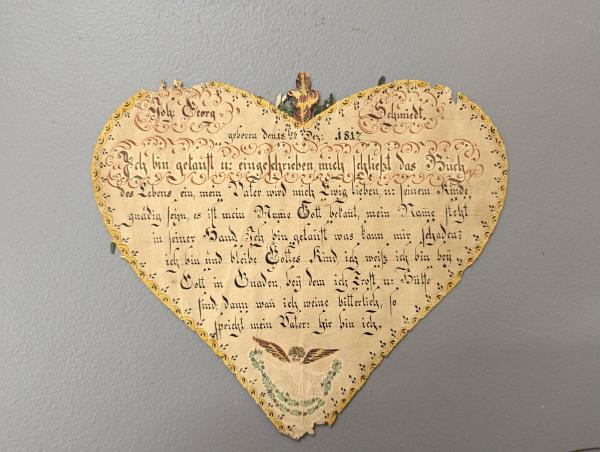 Joh: Georg Schmidt.
geboren den 18 ten Dez: 1817
Ich bin getauft u: eingeschrieben, mich schließt das Buch
des Lebens ein, mein Vater wird mich Ewig lieben, u: seinem Kinde
gnädig seyn, es ist mein Name Gott bekant, mein Name steht
in seiner Hand. Ich bin getauft was kann mir schaden?
ich bin und bleibe Gottes Kind, ich weiß ich bin bey
Gott in Gnaden, bey dem ich Trost, u: Hülfe
find; dann wan ich weine bitterlich, so
spricht mein Vater: hir bin ich.